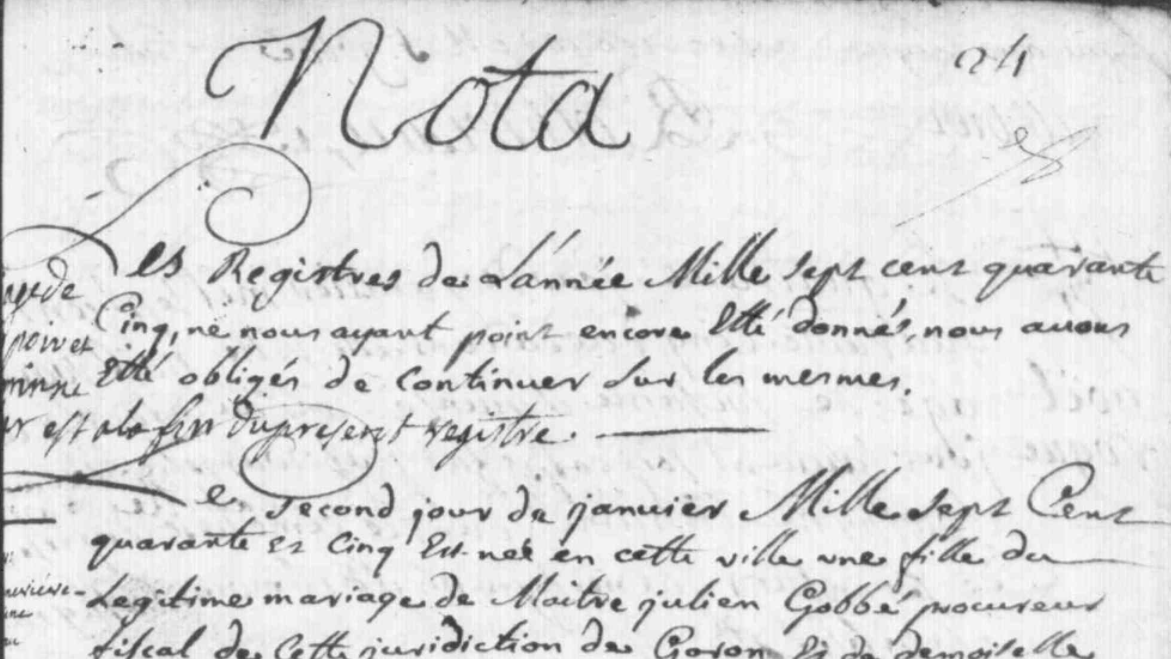 24
Nota
Les Registres de L'année Mille sept cent quarante
Cinq, ne nous ayant point encore Etté donnés, nous avons
Etté obligés de continuer sur les mesmes.
est a la fin du present registre.
Le second jour de janvier Mille sept Cent
quarante et cinq Est née en cette ville une fille du
Legitime mariage de Maitre julien Gobbé procureur
fiscal de Cette juridiction de Goron Et de demoiselle